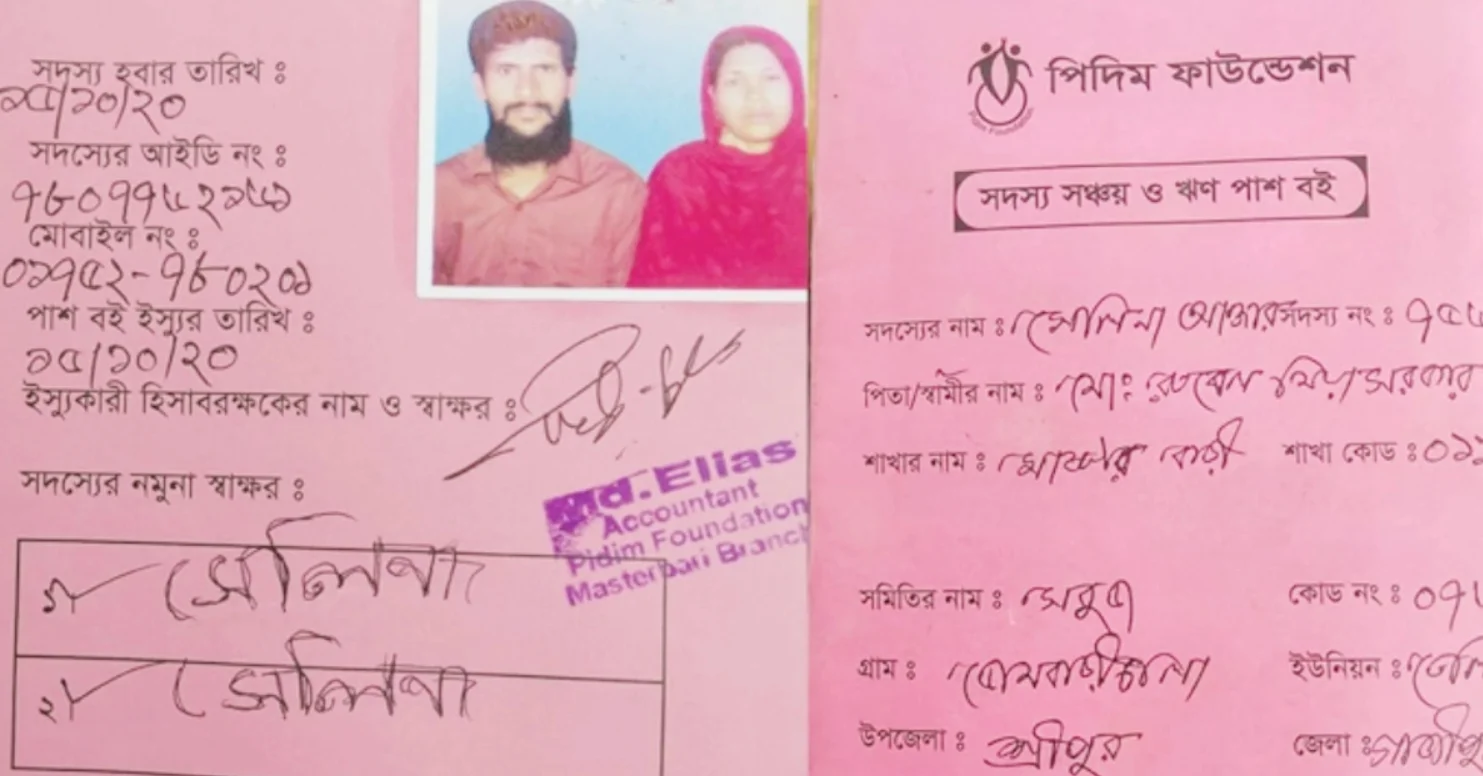 সদস্য হবার তারিখ ঃ
১৫/১০/২০
সদস্যের আইডি নং ঃ
মোবাইল নং ঃ
০১৭৫২-৭৮০২০১
পাশ বই ইস্যুর তারিখ ঃ
১৫/১০/২০
ইস্যুকারী হিসাবরক্ষকের নাম ও স্বাক্ষর ঃ
Md. Elias
Accountant
Pidim Foundation
Masterbari Branch
সদস্যের নমুনা স্বাক্ষর ঃ
১/ সেলিনা
২/ সেলিনা
পিদিম ফাউন্ডেশন
Pidim Foundation
সদস্য সঞ্চয় ও ঋণ পাশ বই
সদস্যের নাম ঃ সেলিনা আক্তার সদস্য নং ঃ
পিতা/স্বামীর নাম ঃ মোঃ মিয়া সরকার
শাখার নাম ঃ মাষ্টার বাড়ী শাখা কোড ঃ ০১
সমিতির নাম ঃ সবুজ কোড নং ঃ ০৭
গ্রাম ঃ ইউনিয়ন ঃ
উপজেলা ঃ শ্রীপুর জেলা ঃ গাজীপু